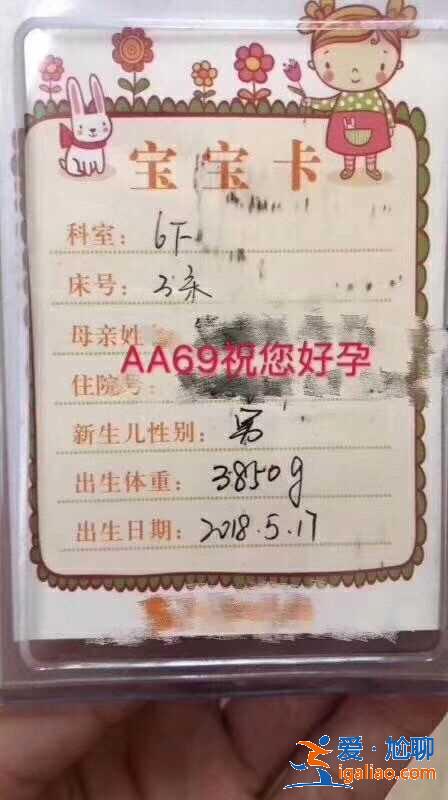 宝宝卡
科室：6下
床号：3床
母亲姓
AA69祝您好孕
住院号：
新生儿性别：男
出生体重：3850g
出生日期：2018.5.17
爱·尬聊
igaliao.com